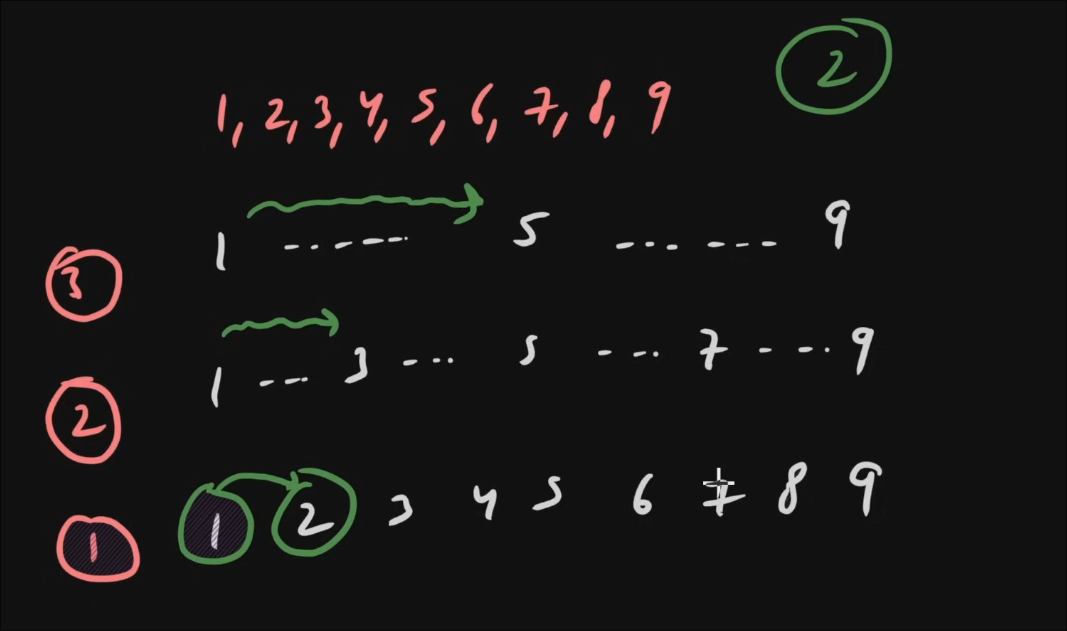 2
1, 2, 3, 4, 5, 6, 7, 8, 9
1 ------ 5 ------ 9
3
1 --- 3 --- 5 --- 7 --- 9
2
1 2 3 4 5 6 7 8 9
1